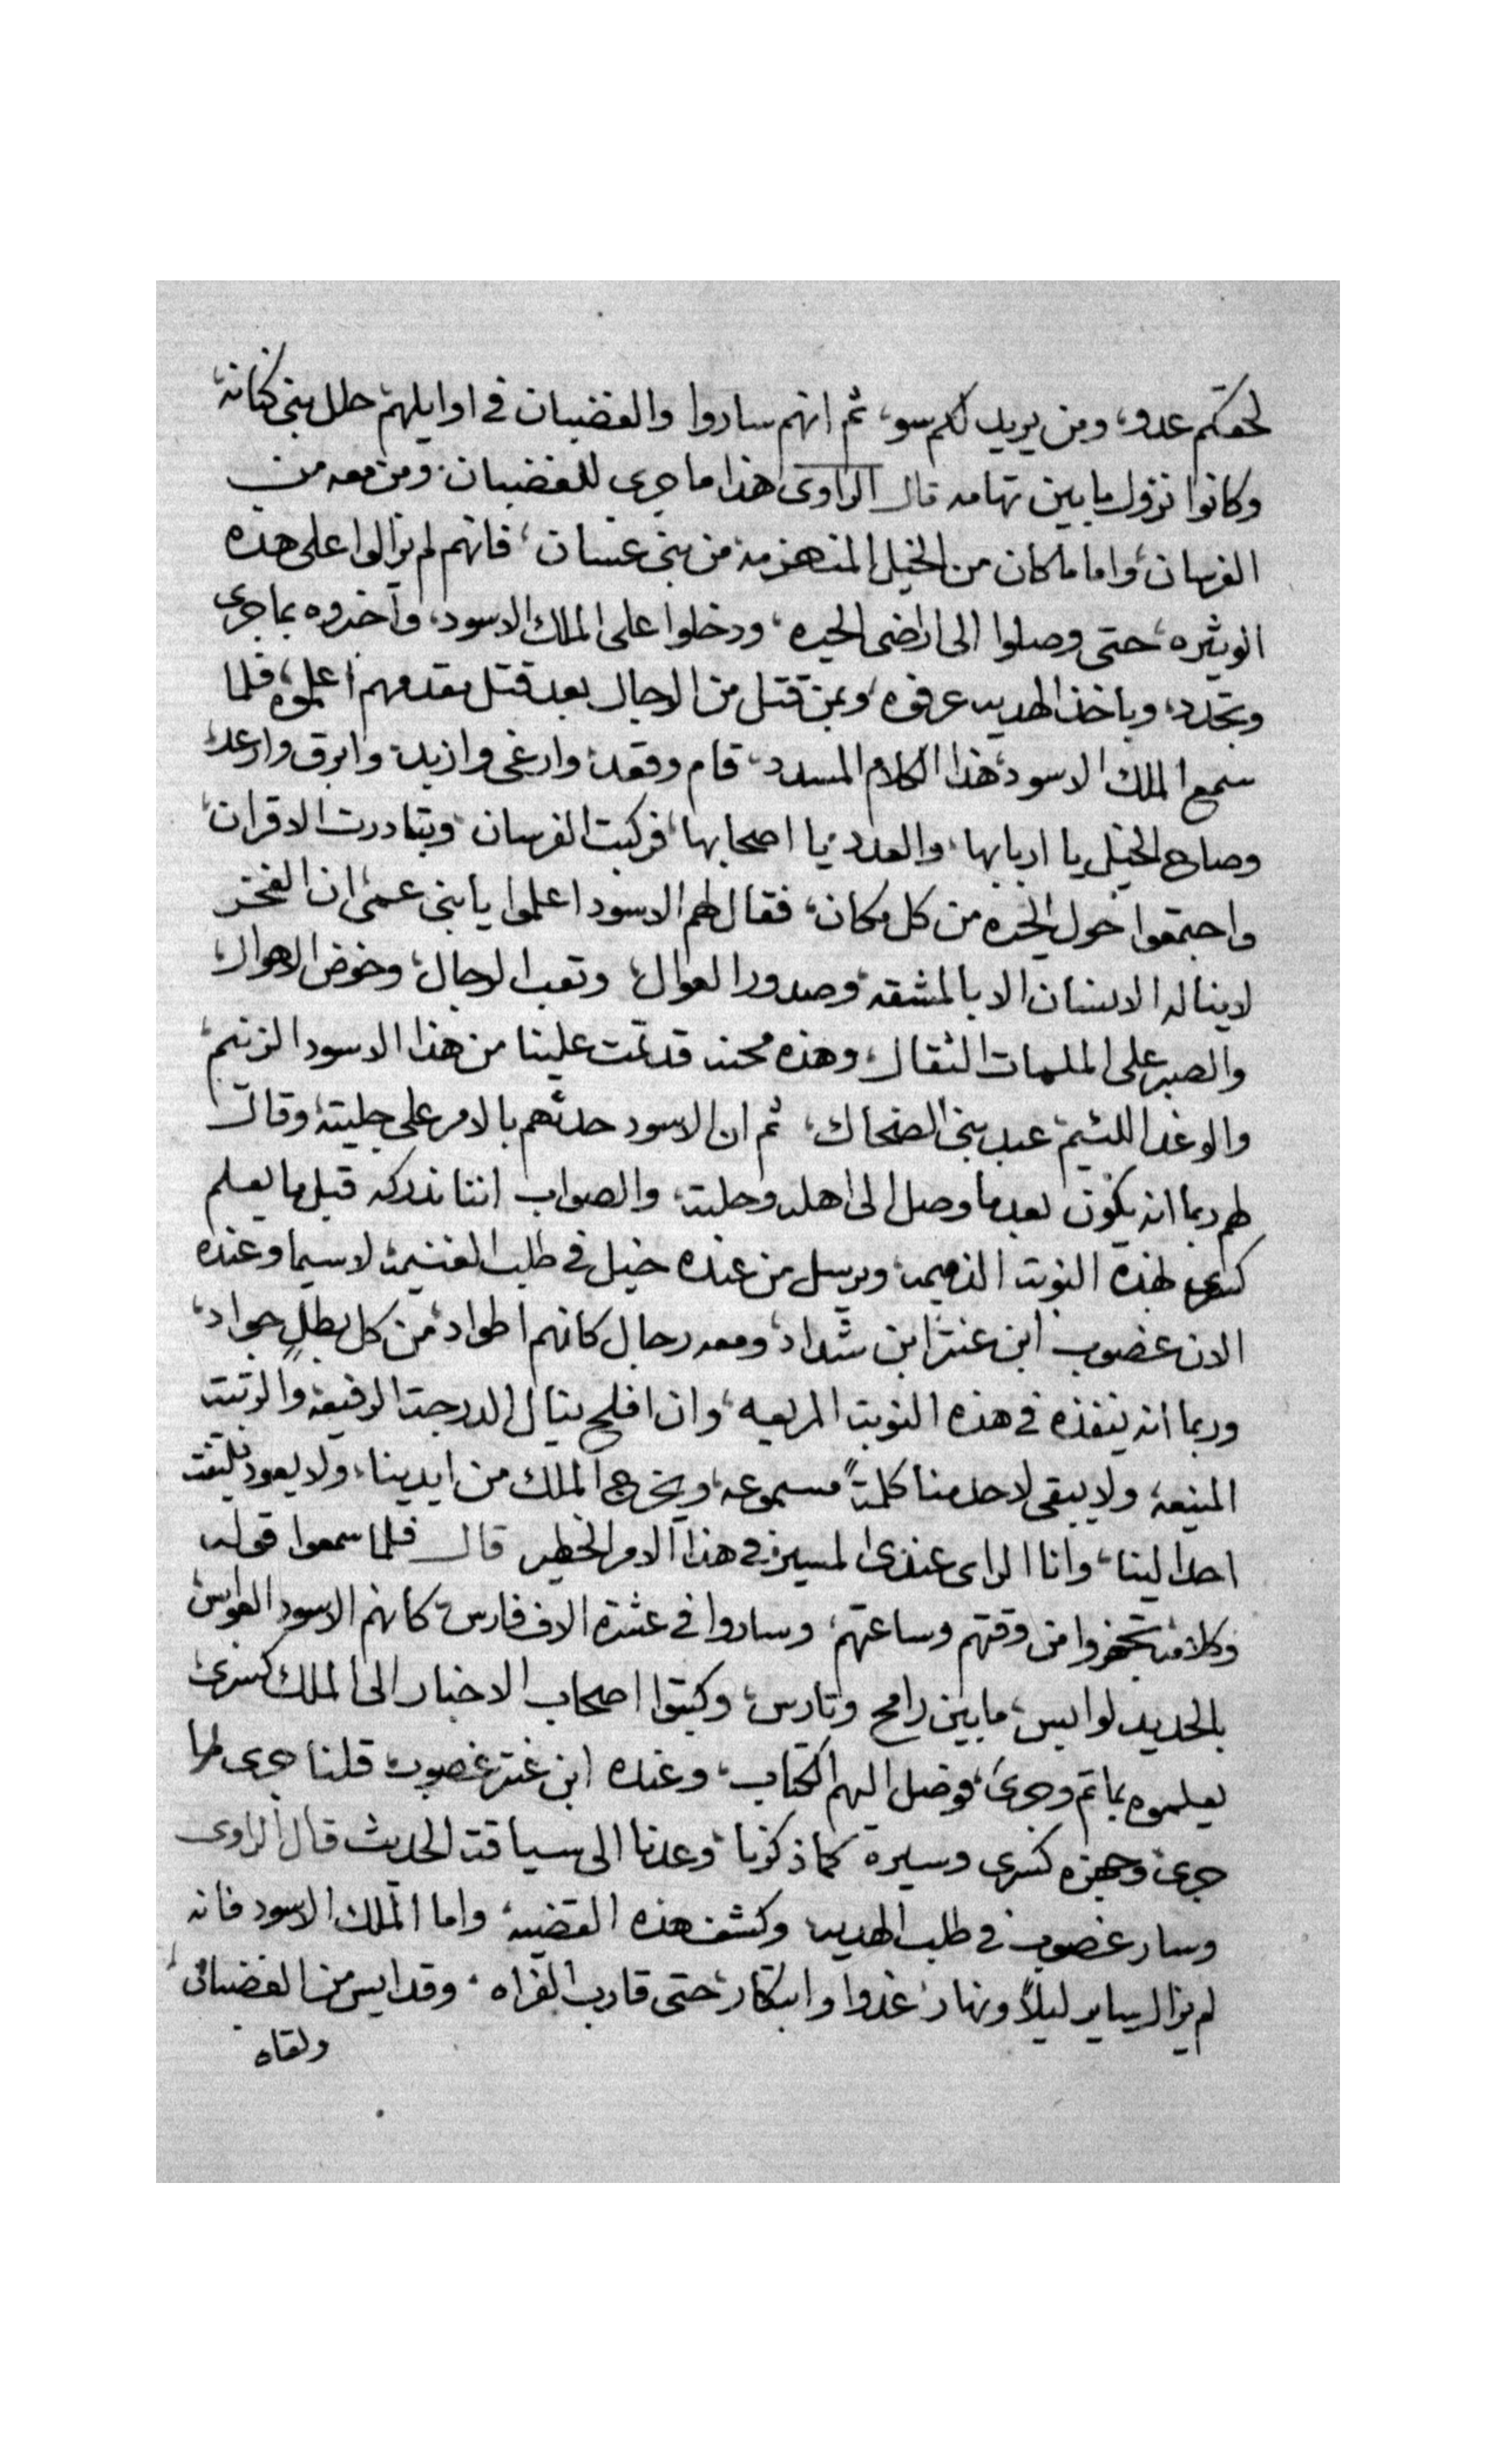 لحقكم عدو، ومن يريد لكم سو، ثم انهم ساروا والغضبان في اوايلهم حلل بني كنانه،
وكانوا نزول ما بين تهامه قال الراوي هذا ما جري للغضبان، ومن معه من
الفرسان، واما ما كان من الخيل المنهزمه من بني غسان، فانهم لم يزالوا على هذه
الوتيره، حتى وصلوا الى اراضى الحيره، ودخلوا على الملك الاسود، وآخبروه بما جرى
وتجدد، وباخذ الهديه عرفوه، وبمن قتل من الرجال بعد قتل مقدمهم اعلموه، فلما
سمع الملك الاسود، هذا الكلام المسدد، قام وقعد، وارغى وازبد، وابرق وارعد،
وصاح الخيل يا اربابها، والعدد يا اصحابها، فركبت الفرسان، وتبادرت الاقران،
واجتمعوا حول الحيره من كل مكان، فقال لهم الاسود اعلموا يا بني عمى، ان الفخر
لا يناله الانسان الا بالمشقه، وصدور العوال، وتعب الرجال، وخوض الاهوال،
والصبر على الملمات الثقال، وهذه محنه قد تمت علينا من هذا الاسود الزنيم،
والوغد اللئيم، عبد بني الضحاك، ثم ان الاسود حدثهم بالامر على جليته، وقال
لهم ربما انه يكون بعد ما وصل الى اهله وحلته، والصواب اننا ندركه قبل ما يعلم
كسرى بهذه النوبت الذميمه، ويرسل من عنده خيل في طلب الغنيمه، لاسيما وعنده
الان غضوب ابن عنتر ابن شداد، ومعه رجال كانهم اطواد، من كل بطل جواد،
وربما انه ينفذه في هذه النوبت المريعه، وان افلح ينال الدرجت الرفيعه، والرتبت
المنيعه، ولا يبقى لاحد منا كلمتاً مسموعه، ويخرج الملك من ايدينا، ولا يعود يلتفت
احد الينا، وانا الراى عندى المسير، في هذا الامر الخطير قال فلما سمعوا قوله
وكلامه تجهزوا من وقتهم وساعتهم، وساروا في عشرة الاف فارس، كانهم الاسود العوابس
بالحديد لوابس، ما بين رامح وتارس، وكتبوا اصحاب الاخبار الى الملك كسرى،
يعلموه بما تم وجرى، فوصل اليهم الكتاب، وعنده ابن عنتر غضوب، قلنا جرى لها
جرى، وجهزه كسرى وسيره كما ذكرنا، وعدنا الى سياقت الحديث قال الراوى
وسار غضوب في طلب الهديه وكشف هذه القضيه، واما الملك الاسود فانه
لم يزال ساير ليلاً ونهار، غدوا وابتكار، حتى قارب الفراه، وقد ايس من الغضبان،
ولقاه